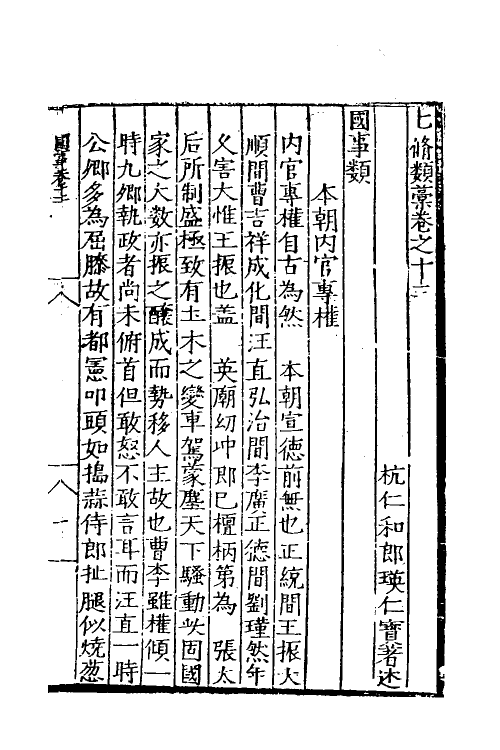 七脩類藁卷之十三
杭仁和郎瑛仁寶著述
國事類
本朝内官專權
内官專權自古為然 本朝宣德前無也正統間王振大
順間曹吉祥成化間汪直弘治間李廣正德間劉瑾然年
乆害大惟王振也盖 英廟幼冲即已檀柄第為 張太
后所制盛極致有土木之變車駕蒙塵天下騷動此固國
家之大數亦振之釀成而勢移人主故也曹李雖權傾一
時九卿執政者尚未俯首但敢怒不敢言耳而汪直一時
公卿多為屈膝故有都憲叩頭如搗蒜侍郎扯腿似燒葱
國事卷十三